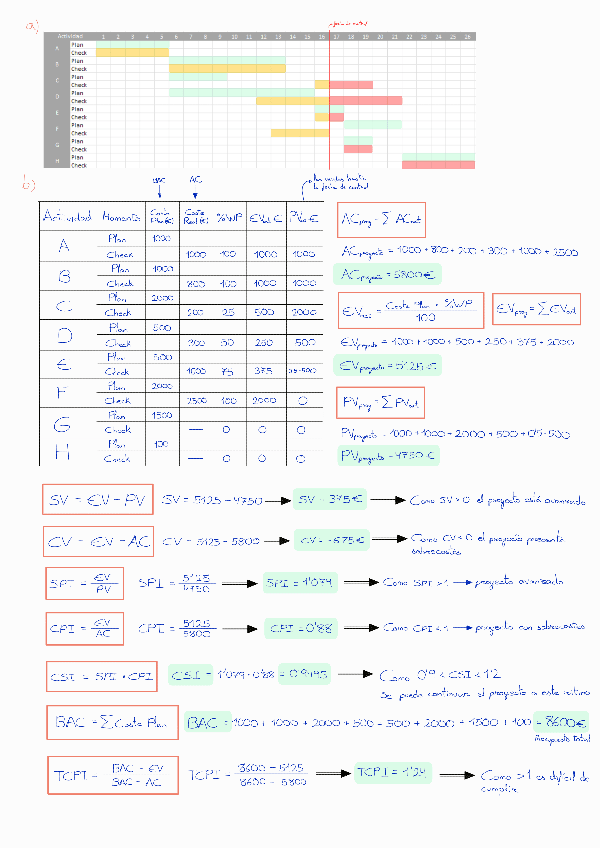 a)
Actividad 1 2 3 4 5 6 7 8 9 10 11 12 13 14 15 16 17 18 19 20 21 22 23 24 25 26
A Plan
Check
B Plan
Check
C Plan
Check
D Plan
Check
E Plan
Check
F Plan
Check
G Plan
Check
H Plan
Check
b)
AC
la fecha de control
Actividad Momento Coste Plan (€) Coste Real (€) %WP EVact € PVact €
A Plan 1000
Check 1000 100 1000 1000
B Plan 1000
Check 800 100 1000 1000
C Plan 2000
Check 200 25 500 2000
D Plan 500
Check 300 50 250 500
E Plan 500
Check 1000 75 375 0'5·500
F Plan 2000
Check 2500 100 2000 0
G Plan 1500
Check — 0 0
H Plan 100
Check — 0 0
ACproy = ∑ ACact
ACproyecto = 1000 + 800 + 200 + 300 + 1000 + 2500
ACproyecto = 5800€
EVact = Coste Plan · %WP / 100
EVproy = ∑ EVact
EVproyecto = 1000 + 1000 + 500 + 250 + 375 + 2000
EVproyecto = 5125€
PVproy = ∑ PVact
PVproyecto = 1000 + 1000 + 2000 + 500 + 0'5·500
PVproyecto = 4750€
SV = EV - PV SV = 5125 - 4750 → SV = 375€ → Como SV > 0 el proyecto está avanzado
CV = EV - AC CV = 5125 - 5800 → CV = -675€ → Como CV < 0 el proyecto presenta
sobrecostes
SPI = EV / PV SPI = 5125 / 4750 → SPI = 1'079 → Como SPI > 1 → proyecto avanzado
CPI = EV / AC CPI = 5125 / 5800 → CPI = 0'88 → Como CPI < 1 → proyecto con sobrecostes
CSI = SPI · CPI CSI = 1'079 · 0'88 = 0'9495 → Como 0'9 < CSI < 1'2
Se puede continuar el proyecto a este ritmo
BAC = ∑ Coste Plan BAC = 1000 + 1000 + 2000 + 500 + 500 + 2000 + 1500 + 100 = 8600€
Presupuesto Total
TCPI = BAC - EV / BAC - AC TCPI = 8600 - 5125 / 8600 - 5800 → TCPI = 1'24 → Como > 1 es difícil de
cumplir